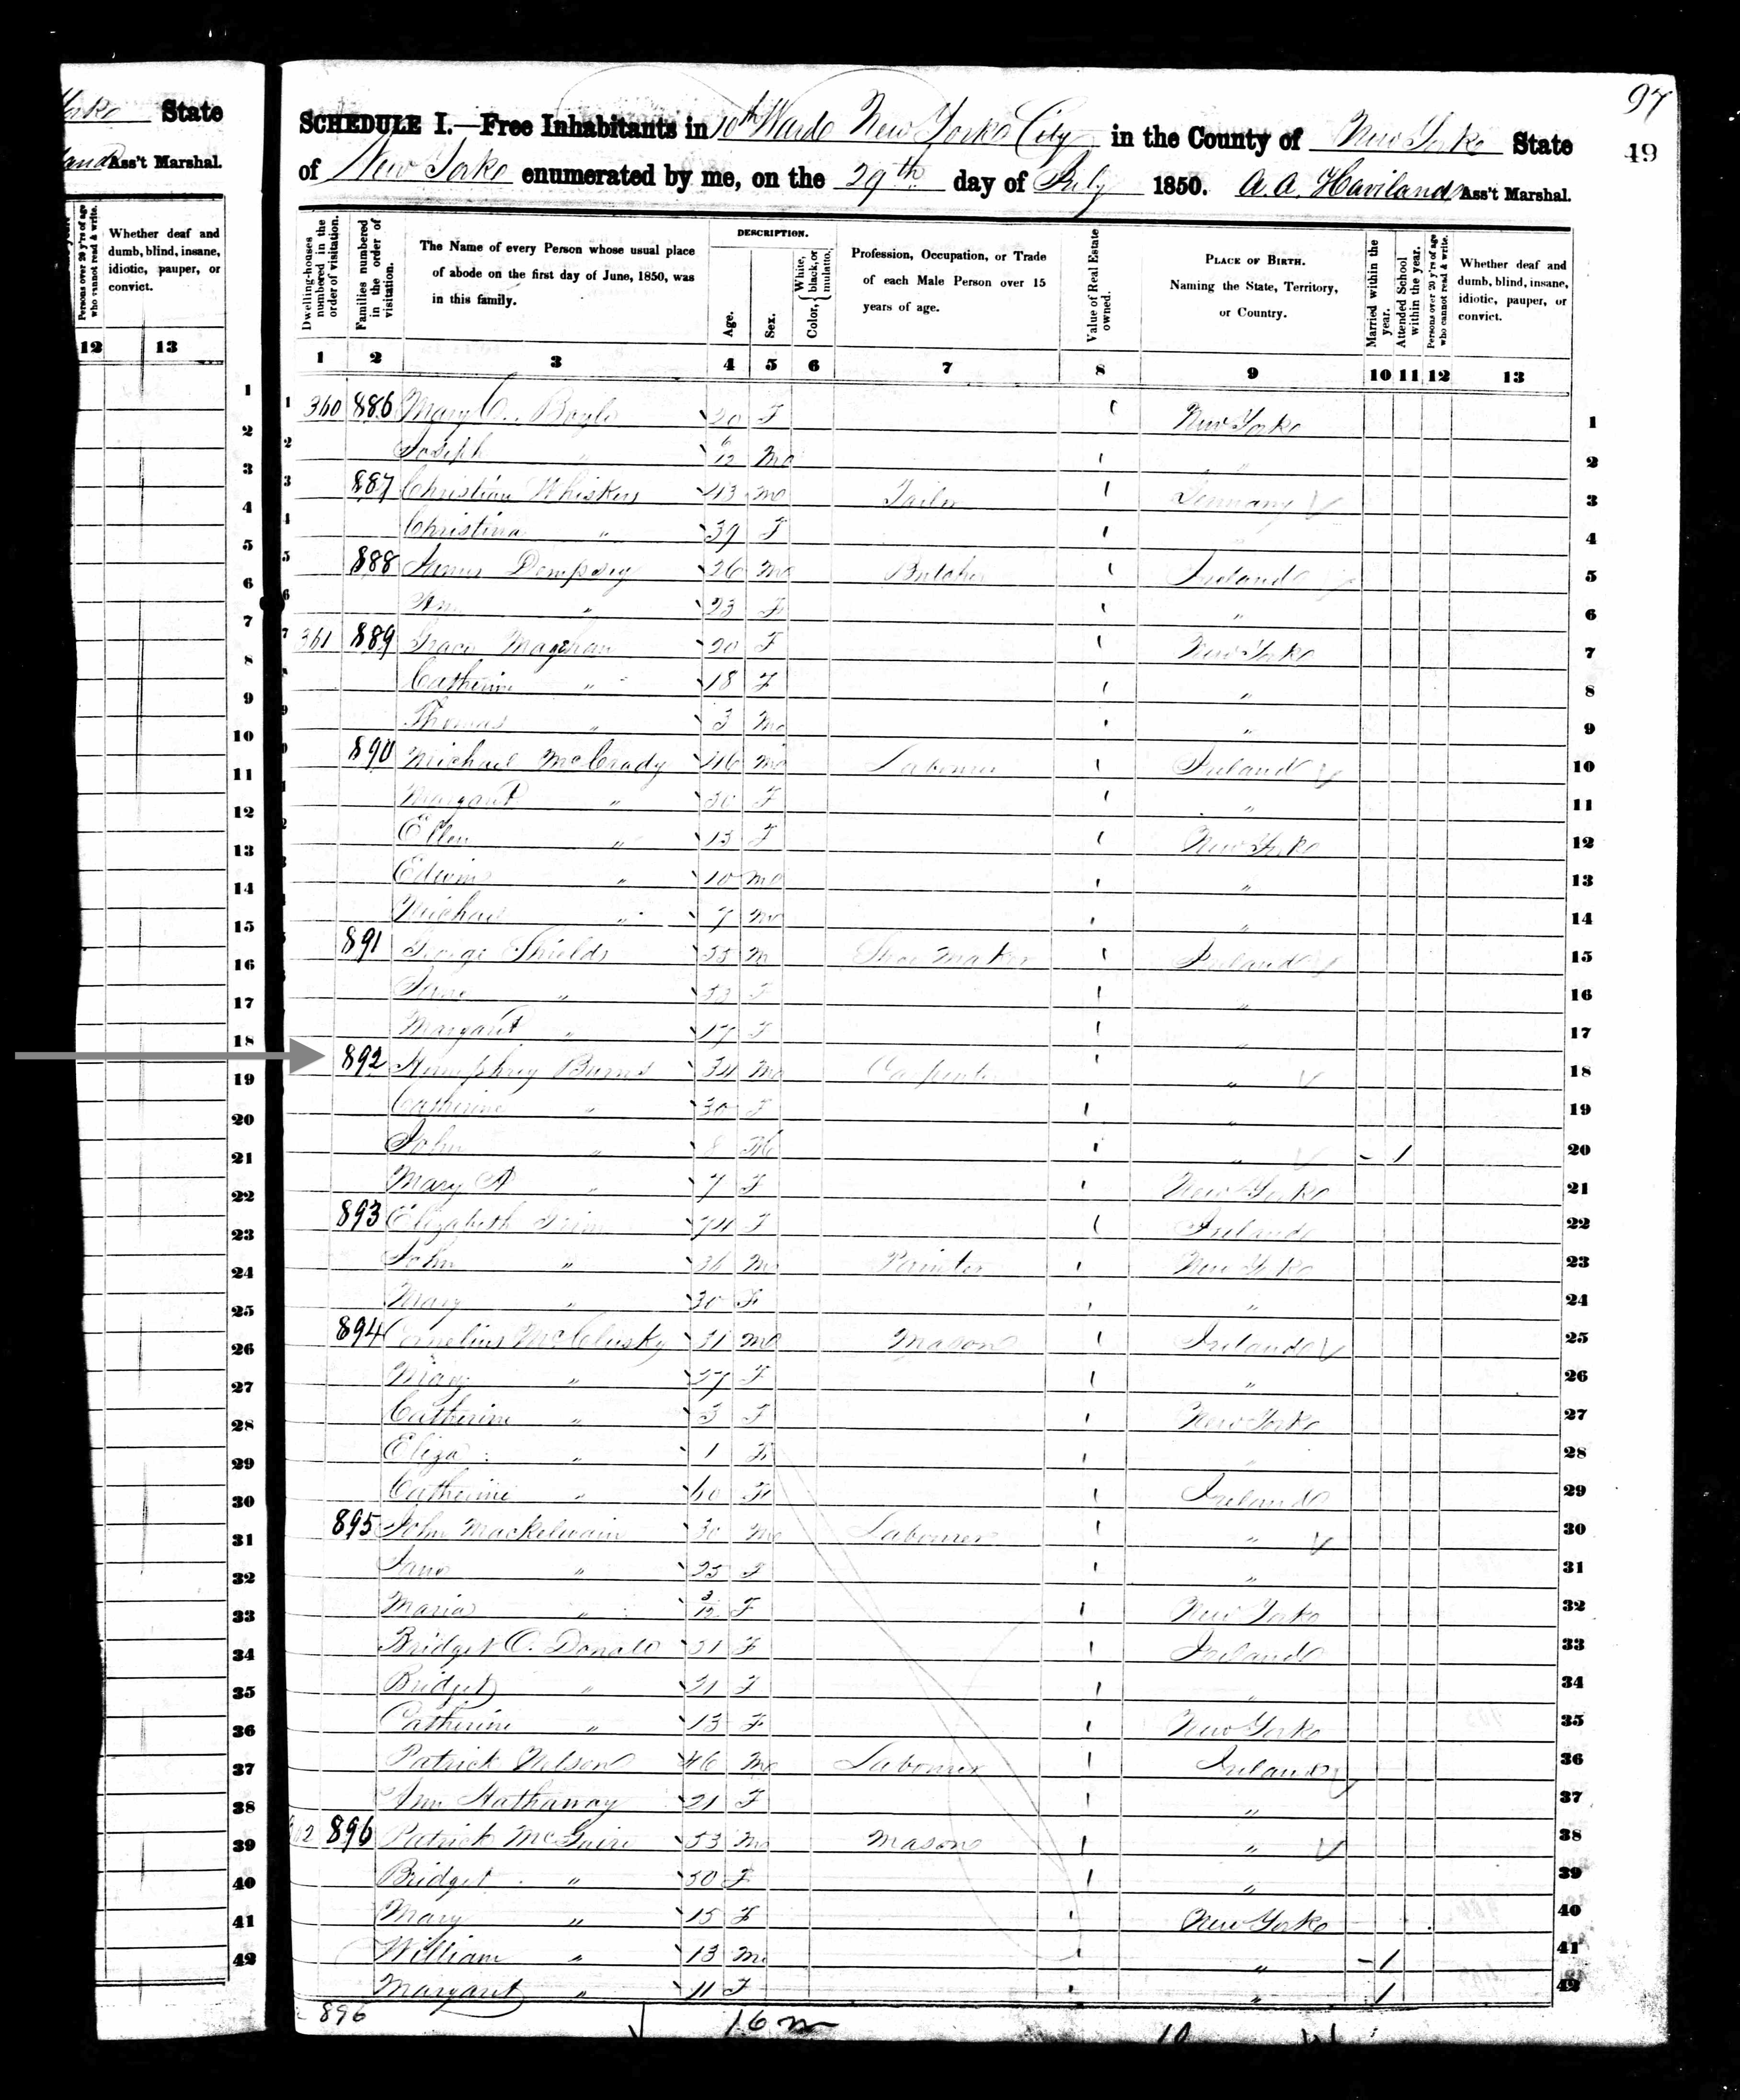 97
49
State
Ass't Marshal.
SCHEDULE I.—Free Inhabitants in 10th Ward New York City in the County of New York State
of New York enumerated by me, on the 29th day of July 1850. A. A. Haviland Ass't Marshal.
Persons over 20 y'rs of age who cannot read & write.
Whether deaf and dumb, blind, insane, idiotic, pauper, or convict.
12 13
Dwelling-houses numbered in the order of visitation.
Families numbered in the order of visitation.
The Name of every Person whose usual place of abode on the first day of June, 1850, was in this family.
DESCRIPTION.
Age.
Sex.
Color, { White, black, or mulatto.
Profession, Occupation, or Trade of each Male Person over 15 years of age.
Value of Real Estate owned.
PLACE OF BIRTH. Naming the State, Territory, or Country.
Married within the year.
Attended School within the year.
Persons over 20 y'rs of age who cannot read & write.
Whether deaf and dumb, blind, insane, idiotic, pauper, or convict.
1 2 3 4 5 6 7 8 9 10 11 12 13
1 360 886 Mary C. Boyle 20 F New York 1
2 Joseph " 6/12 M " 2
3 887 Christian Whiskers 43 M Tailor Germany 3
4 Christina " 39 F " 4
5 888 James Dempsey 26 M Butcher Ireland 5
6 Ann " 23 F " 6
7 361 889 Grace 20 F New York 7
Catherine " 18 F " 8
9 Thomas " 3 M " 9
890 Michael McCrady 46 M Labourer Ireland 10
Margaret " 36 F " 11
Ellen " 13 F New York 12
Edwin " 10 M " 13
Michael " 7 M " 14
891 George Shields 35 M Shoe Maker Ireland 15
Jane " 33 F " 16
Margaret " 17 F " 17
892 Humphrey Burns 34 M Carpenter " 18
Catherine " 30 F " 19
John " 8 M " 1 20
Mary A " 7 F New York 21
893 Elizabeth 74 F Ireland 22
John " 36 M Painter New York 23
Mary " 30 F " 24
894 Cornelius McClusky 31 M Mason Ireland 25
Mary " 27 F " 26
Catherine " 3 F New York 27
Eliza " 1 F " 28
Catherine " 60 F Ireland 29
895 John Mackelwain 30 M Labourer " 30
Jane " 25 F " 31
Maria " 3/12 F New York 32
Bridget O. Donald 51 F Ireland 33
Bridget " 21 F " 34
Catherine " 13 F New York 35
Patrick Nelson 46 M Labourer Ireland 36
Ann Hathaway 21 F " 37
62 896 Patrick McGuire 53 M Mason " 38
Bridget " 50 F " 39
Mary " 15 F New York 40
William " 13 M " 1 41
Margaret " 11 F " 1 42
896 16 m